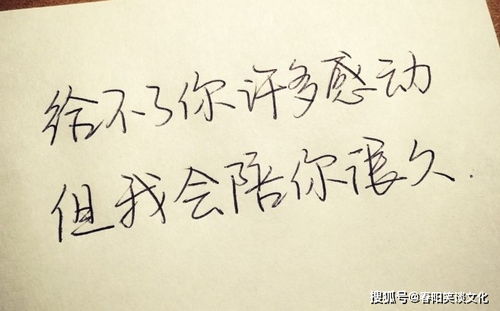 给不了你许多感动
但我会陪你很久.
搜狐号@春阳笑谈文化